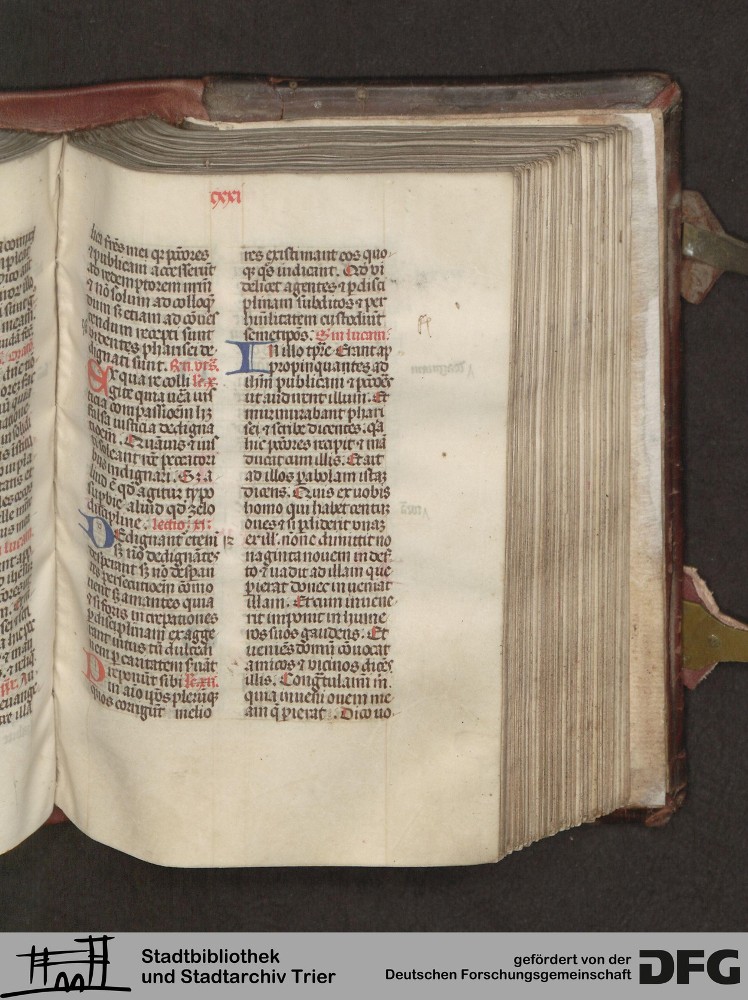 cxxi
lica fr̄es mei qr p̄cōres
⁊ publicani accesserūt
ad redemptorem n̄rm
⁊ nō solum ad colloq̄
dum sꝫ etiam ad cōues
cendum recepti sunt
videntes pharisei de
dignati sunt. Ren. vrs̄.
Ex qua re colli le.x.
gite quia uēa ius
ticia compassioēm hꝫ
falsa iusticia dedigna
tioēm. Quāuis ⁊ ius
ti soleant rc̄e peccatori
bus indignari. Sꝫ a
liud ē qd̓ agitur typo
supbie. aliud qd̓ zelo
discipline. lectio. xi:
Dedignant̄ eteni
sꝫ nō dedignātes
desperant sꝫ nō despan
tes persecutioēm cōmo
uent sꝫ amantes quia
⁊ si foris increpationes
p disciplinam exagge
rant intus tn̄ dulcedi
nem p caritatem suāt
Preponūt sibi le.xii.
in aīo ip̄os plerūq̄
quos corrigūt melio
res existimant eos quo
qr q̄s iudicant. Qd̓ vi
delicet agentes ⁊ p disci
plinam subditos ⁊ per
hūilitatem custodiūt
semetipōs. Sm̄ lucam:
In illo tp̄re. Erant ap
propinquantes ad
ih̄m publicani ⁊ pccōres
ut audirent illum. Et
murmurabant phari
sei ⁊ scribe dicentes. q̄a
hic pccōres recipit ⁊ mā
ducat cum illis. Et ait
ad illos pabolam istaꝫ
dicens. Quis ex uobis
homo qui habet centuꝫ
oues ⁊ si pdiderit vnaꝫ
ex ill. nōne dimittit no
naginta nouem in des̄
to ⁊ uadit ad illam que
pierat donec inueniat
illam. Et cum inuene
rit imponit in hume
ros suos gaudens. Et
ueniēs domū cōuocat
amicos ⁊ vicinos dicēs
illis. Cong̃tulam̄ m̄.
quia inueni ouem me
am q̄ pierat. Dico uo
Stadtbibliothek
und Stadtarchiv Trier
gefördert von der
Deutschen Forschungsgemeinschaft
DFG